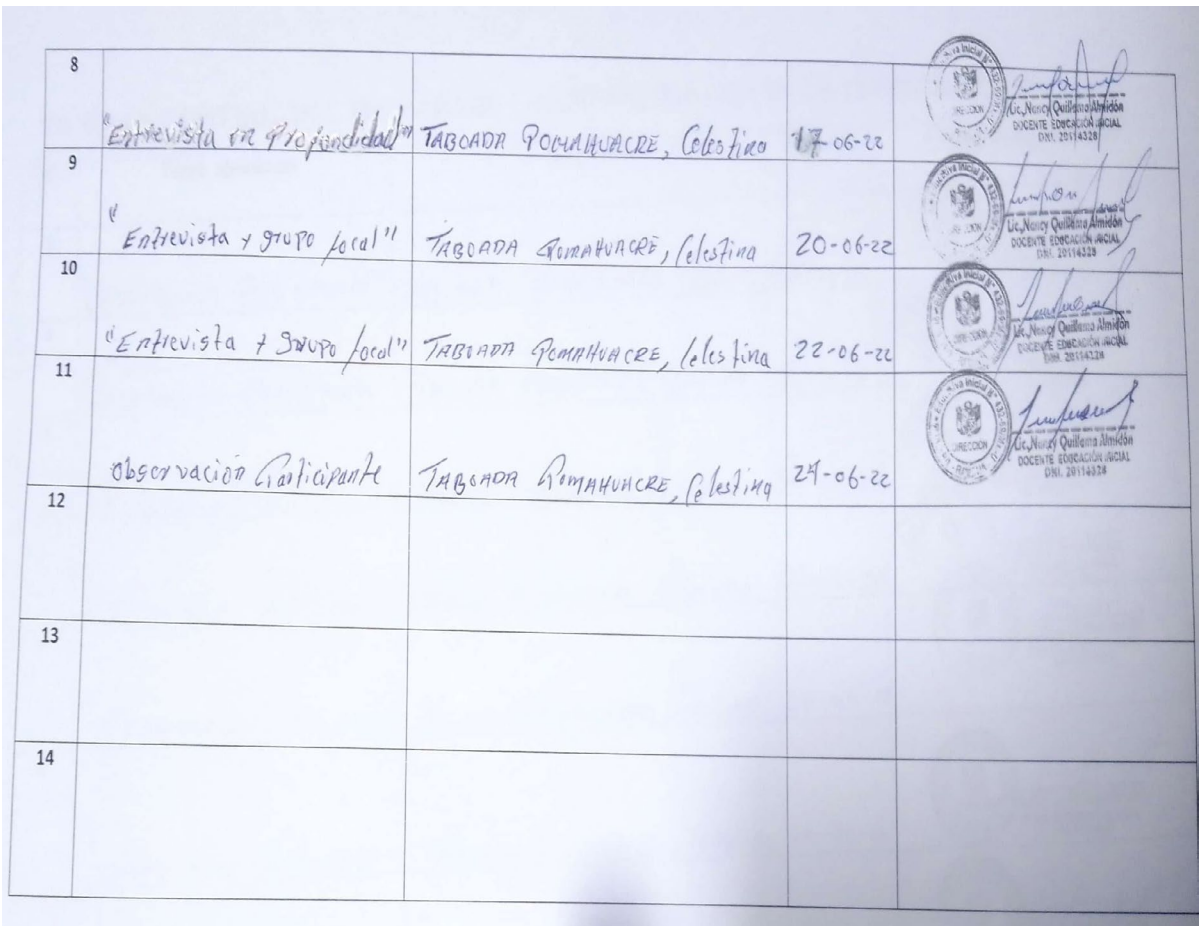 8
"Entrevista en Profundidad" TABOADA POMAHUACRE, Celestina 17-06-22
Lic. Nancy Quillama Almidón
DOCENTE EDUCACIÓN INICIAL
DNI. 20114328
9
"Entrevista y grupo focal" TABOADA POMAHUACRE, Celestina 20-06-22
Lic. Nancy Quillama Almidón
DOCENTE EDUCACIÓN INICIAL
DNI. 20114328
10
"Entrevista y grupo focal" TABOADA POMAHUACRE, Celestina 22-06-22
Lic. Nancy Quillama Almidón
DOCENTE EDUCACIÓN INICIAL
DNI. 20114328
11
DIRECCIÓN
Observación Participante TABOADA POMAHUACRE, Celestina 24-06-22
Lic. Nancy Quillama Almidón
DOCENTE EDUCACIÓN INICIAL
DNI. 20114328
12
13
14